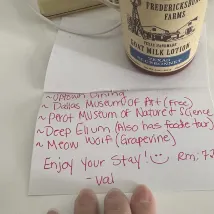 FREDERICKSBURG
FARMS
GOAT MILK LOTION
TEXAS
BLUEBONNET
~ Uptown Dining
~ Dallas Museum of Art (free)
~ Perot Museum of Nature & Science
~ Deep Ellum (Also has foodie tour)
~ Meow Wolf (Grapevine)
Enjoy Your Stay! Rm. 72
- Val